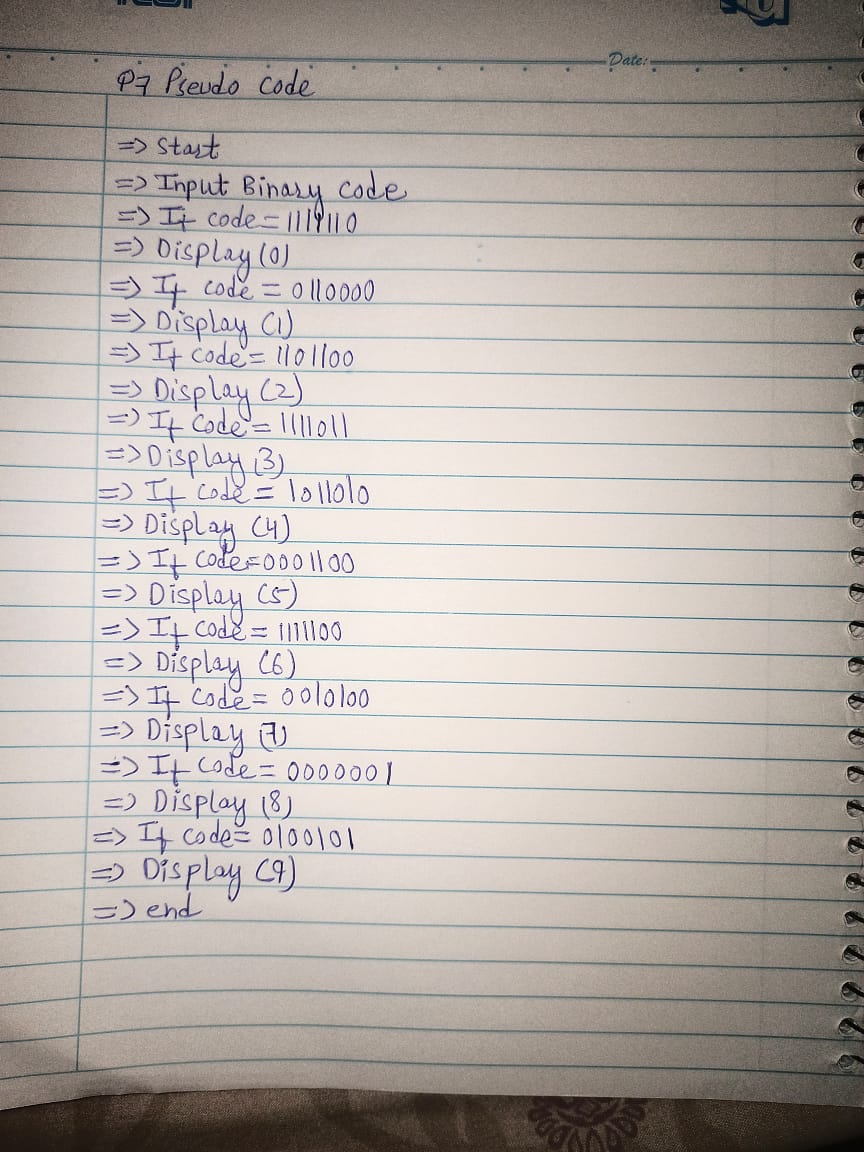 Date:
Q7 Pseudo Code
=> Start
=> Input Binary code
=> If code = 1111110
=> Display (0)
=> If code = 0110000
=> Display (1)
=> If code = 1101100
=> Display (2)
=> If Code = 1111011
=> Display (3)
=> If code = 1011010
=> Display (4)
=> If Code = 0001100
=> Display (5)
=> If code = 1111100
=> Display (6)
=> If code = 0010100
=> Display (7)
=> If code = 0000001
=> Display (8)
=> If code = 0100101
=> Display (9)
=> end